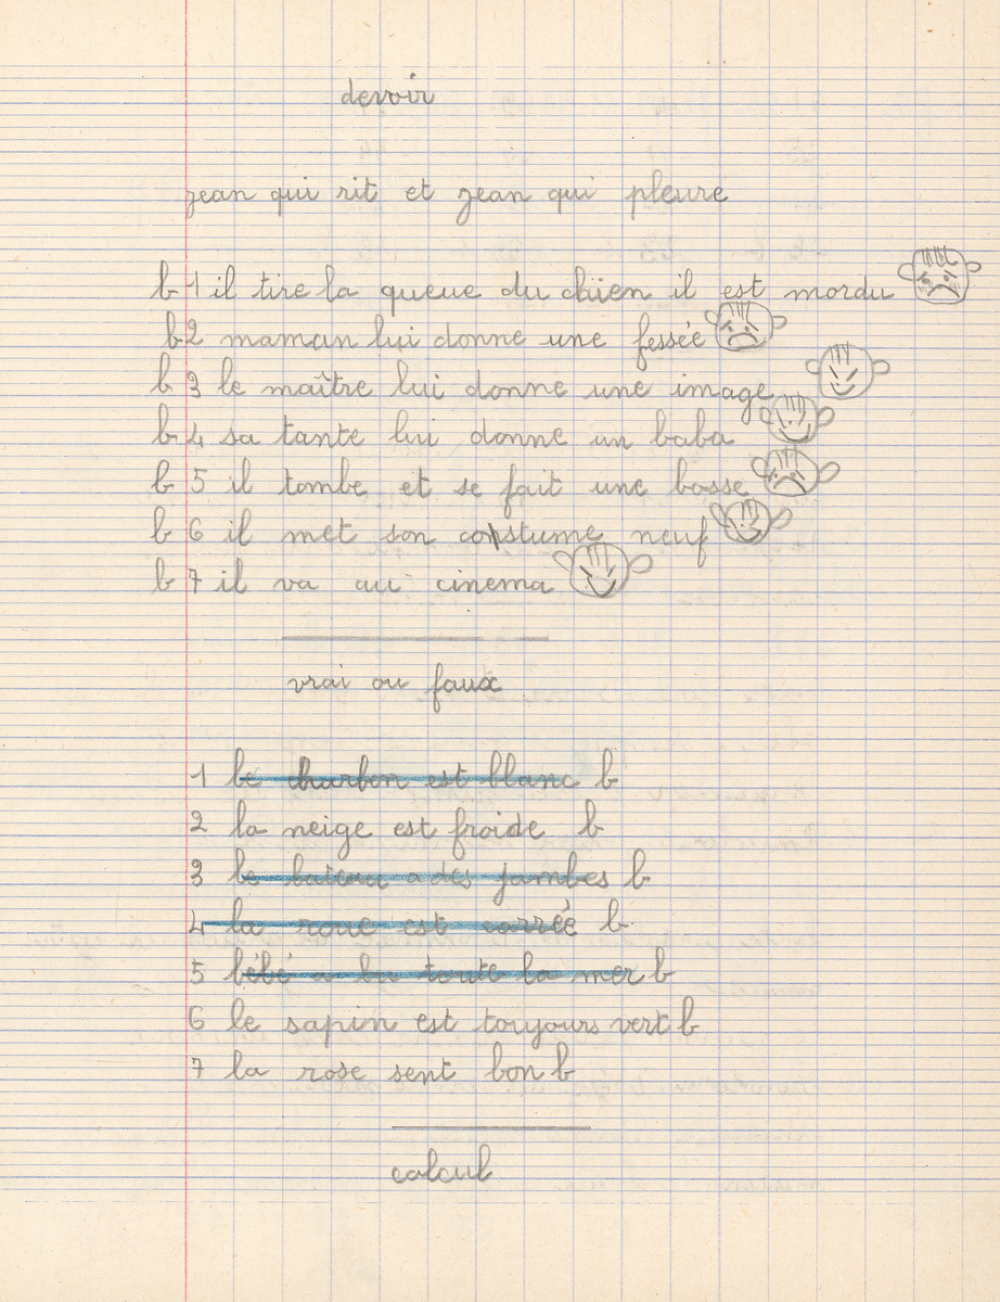 devoir
jean qui rit et jean qui pleure
b 1 il tire la queue du chien il est mordu
b 2 maman lui donne une fessée
b 3 le maître lui donne une image
b 4 sa tante lui donne un baba
b 5 il tombe et se fait une bosse
b 6 il met son costume neuf
b 7 il va au cinema
vrai ou faux
1 le charbon est blanc b
2 la neige est froide b
3 le bateau a des jambes b
4 la roue est carrée b
5 bébé a bu toute la mer b
6 le sapin est toujours vert b
7 la rose sent bon b
calcul